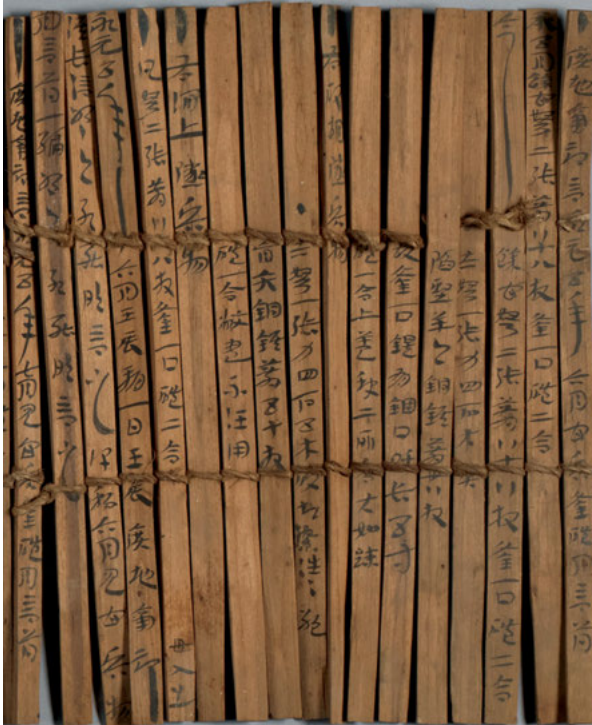 廣地南部言永元五年六月官兵釜磑月言簿
承五月餘官弩二張箭八十八枚釜一口磑二合
今餘官弩二張箭八十八枚釜一口磑二合
赤弩一張力四石木關
陷堅羊頭銅鍭箭卅八枚
故釜一口鍉有錮口呼長五寸
磑一合上蓋缺二所各大如踈
右破胡隧兵物
赤弩一張力四石五木破起繳往往絕
盲矢銅鍭箭五十枚
磑一合敝盡不任用
右澗上隧兵物
凡弩二張箭八十八枚釜一口磑二合 毋入出
永元五年六月壬辰朔一日壬辰廣地南部
候長信叩頭死罪敢言之謹移六月見官兵物
月言簿一編叩頭死罪敢言之
廣地南部言永元五年七月見官兵釜磑月言簿